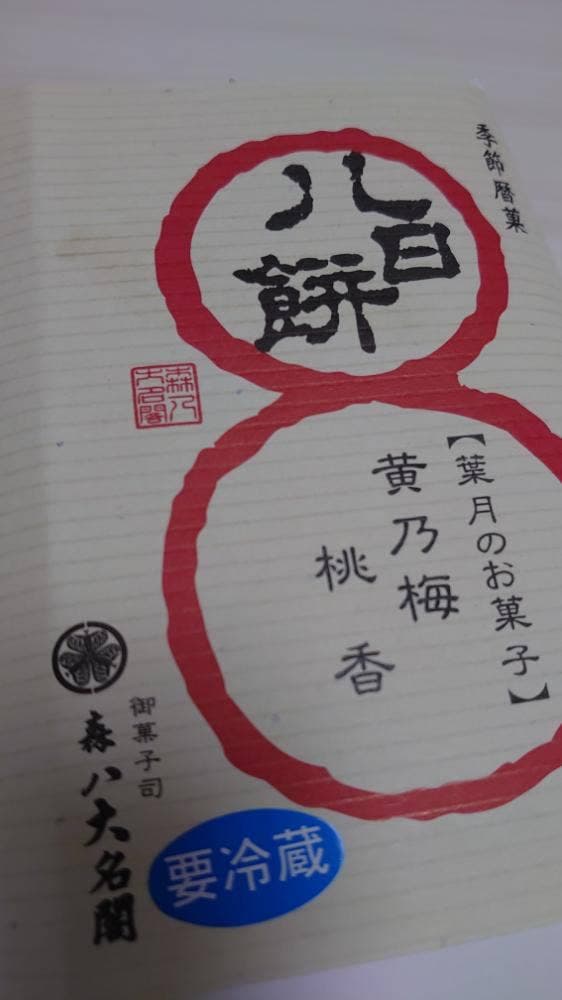 季節暦菓
八百餅
【葉月のお菓子】
黄乃梅
桃香
御菓子司
森八大名閣
要冷蔵